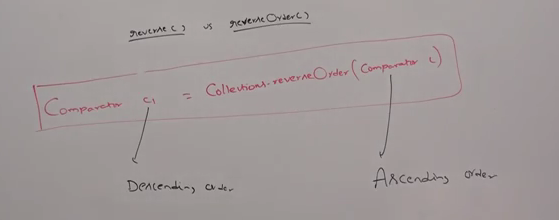 reverse() vs reverseOrder()
Comparator c1 = Collections.reverseOrder(Comparator c)
Descending order
Ascending order